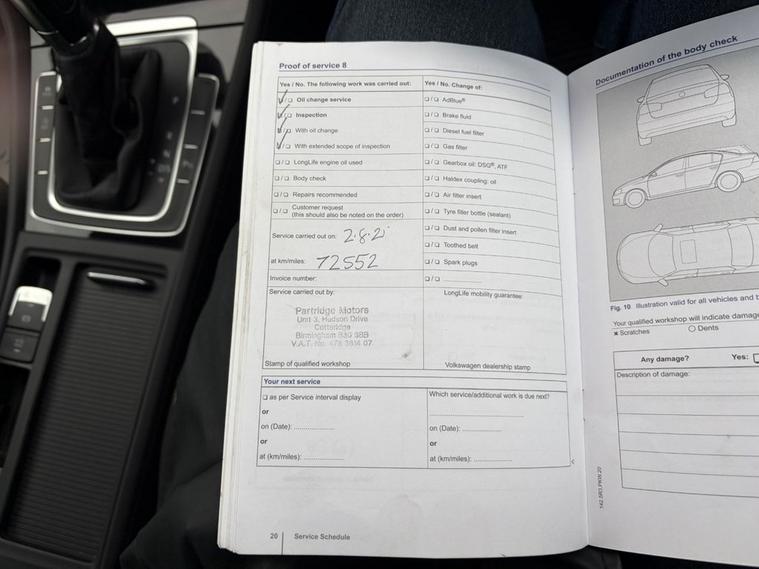 Proof of service 8
Yes / No. The following work was carried out:
❑ / ❑ Oil change service
❑ / ❑ Inspection
❑ / ❑ With oil change
❑ / ❑ With extended scope of inspection
❑ / ❑ LongLife engine oil used
❑ / ❑ Body check
❑ / ❑ Repairs recommended
❑ / ❑ Customer request
(this should also be noted on the order)
Service carried out on: 2.8.21
at km/miles: 72552
Invoice number:
Service carried out by:
Partridge Motors
Unit 3, Hudson Drive
Cotteridge
Birmingham
V.A.T. No.
Stamp of qualified workshop
Yes / No. Change of:
❑ / ❑ AdBlue®
❑ / ❑ Brake fluid
❑ / ❑ Diesel fuel filter
❑ / ❑ Gas filter
❑ / ❑ Gearbox oil: DSG®, ATF
❑ / ❑ Haldex coupling: oil
❑ / ❑ Air filter insert
❑ / ❑ Tyre filler bottle (sealant)
❑ / ❑ Dust and pollen filter insert
❑ / ❑ Toothed belt
❑ / ❑ Spark plugs
❑ / ❑ ....................
LongLife mobility guarantee:
Volkswagen dealership stamp
Your next service
❑ as per Service interval display
or
on (Date): ..............
or
at (km/miles): ..............
Which service/additional work is due next?
on (Date): ..............
or
at (km/miles): ..............
20 Service Schedule
Documentation of the body check
Fig. 10 Illustration valid for all vehicles and
Your qualified workshop will indicate damage
× Scratches ○ Dents
Any damage? Yes:
Description of damage: